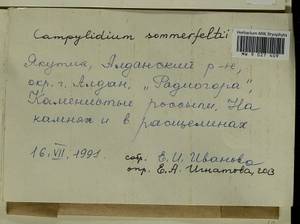 Herbarium MW, Bryophyta
MW 9 027 459
Campylidium sommerfeltii
Якутия, Алданский р-н,
окр. г. Алдан, „Радиогора",
Каменистые россыпи. На
камнях и в расщелинах
16. VII. 1991. собр. Е.И. Иванова
опр. Е.А. Игнатова,